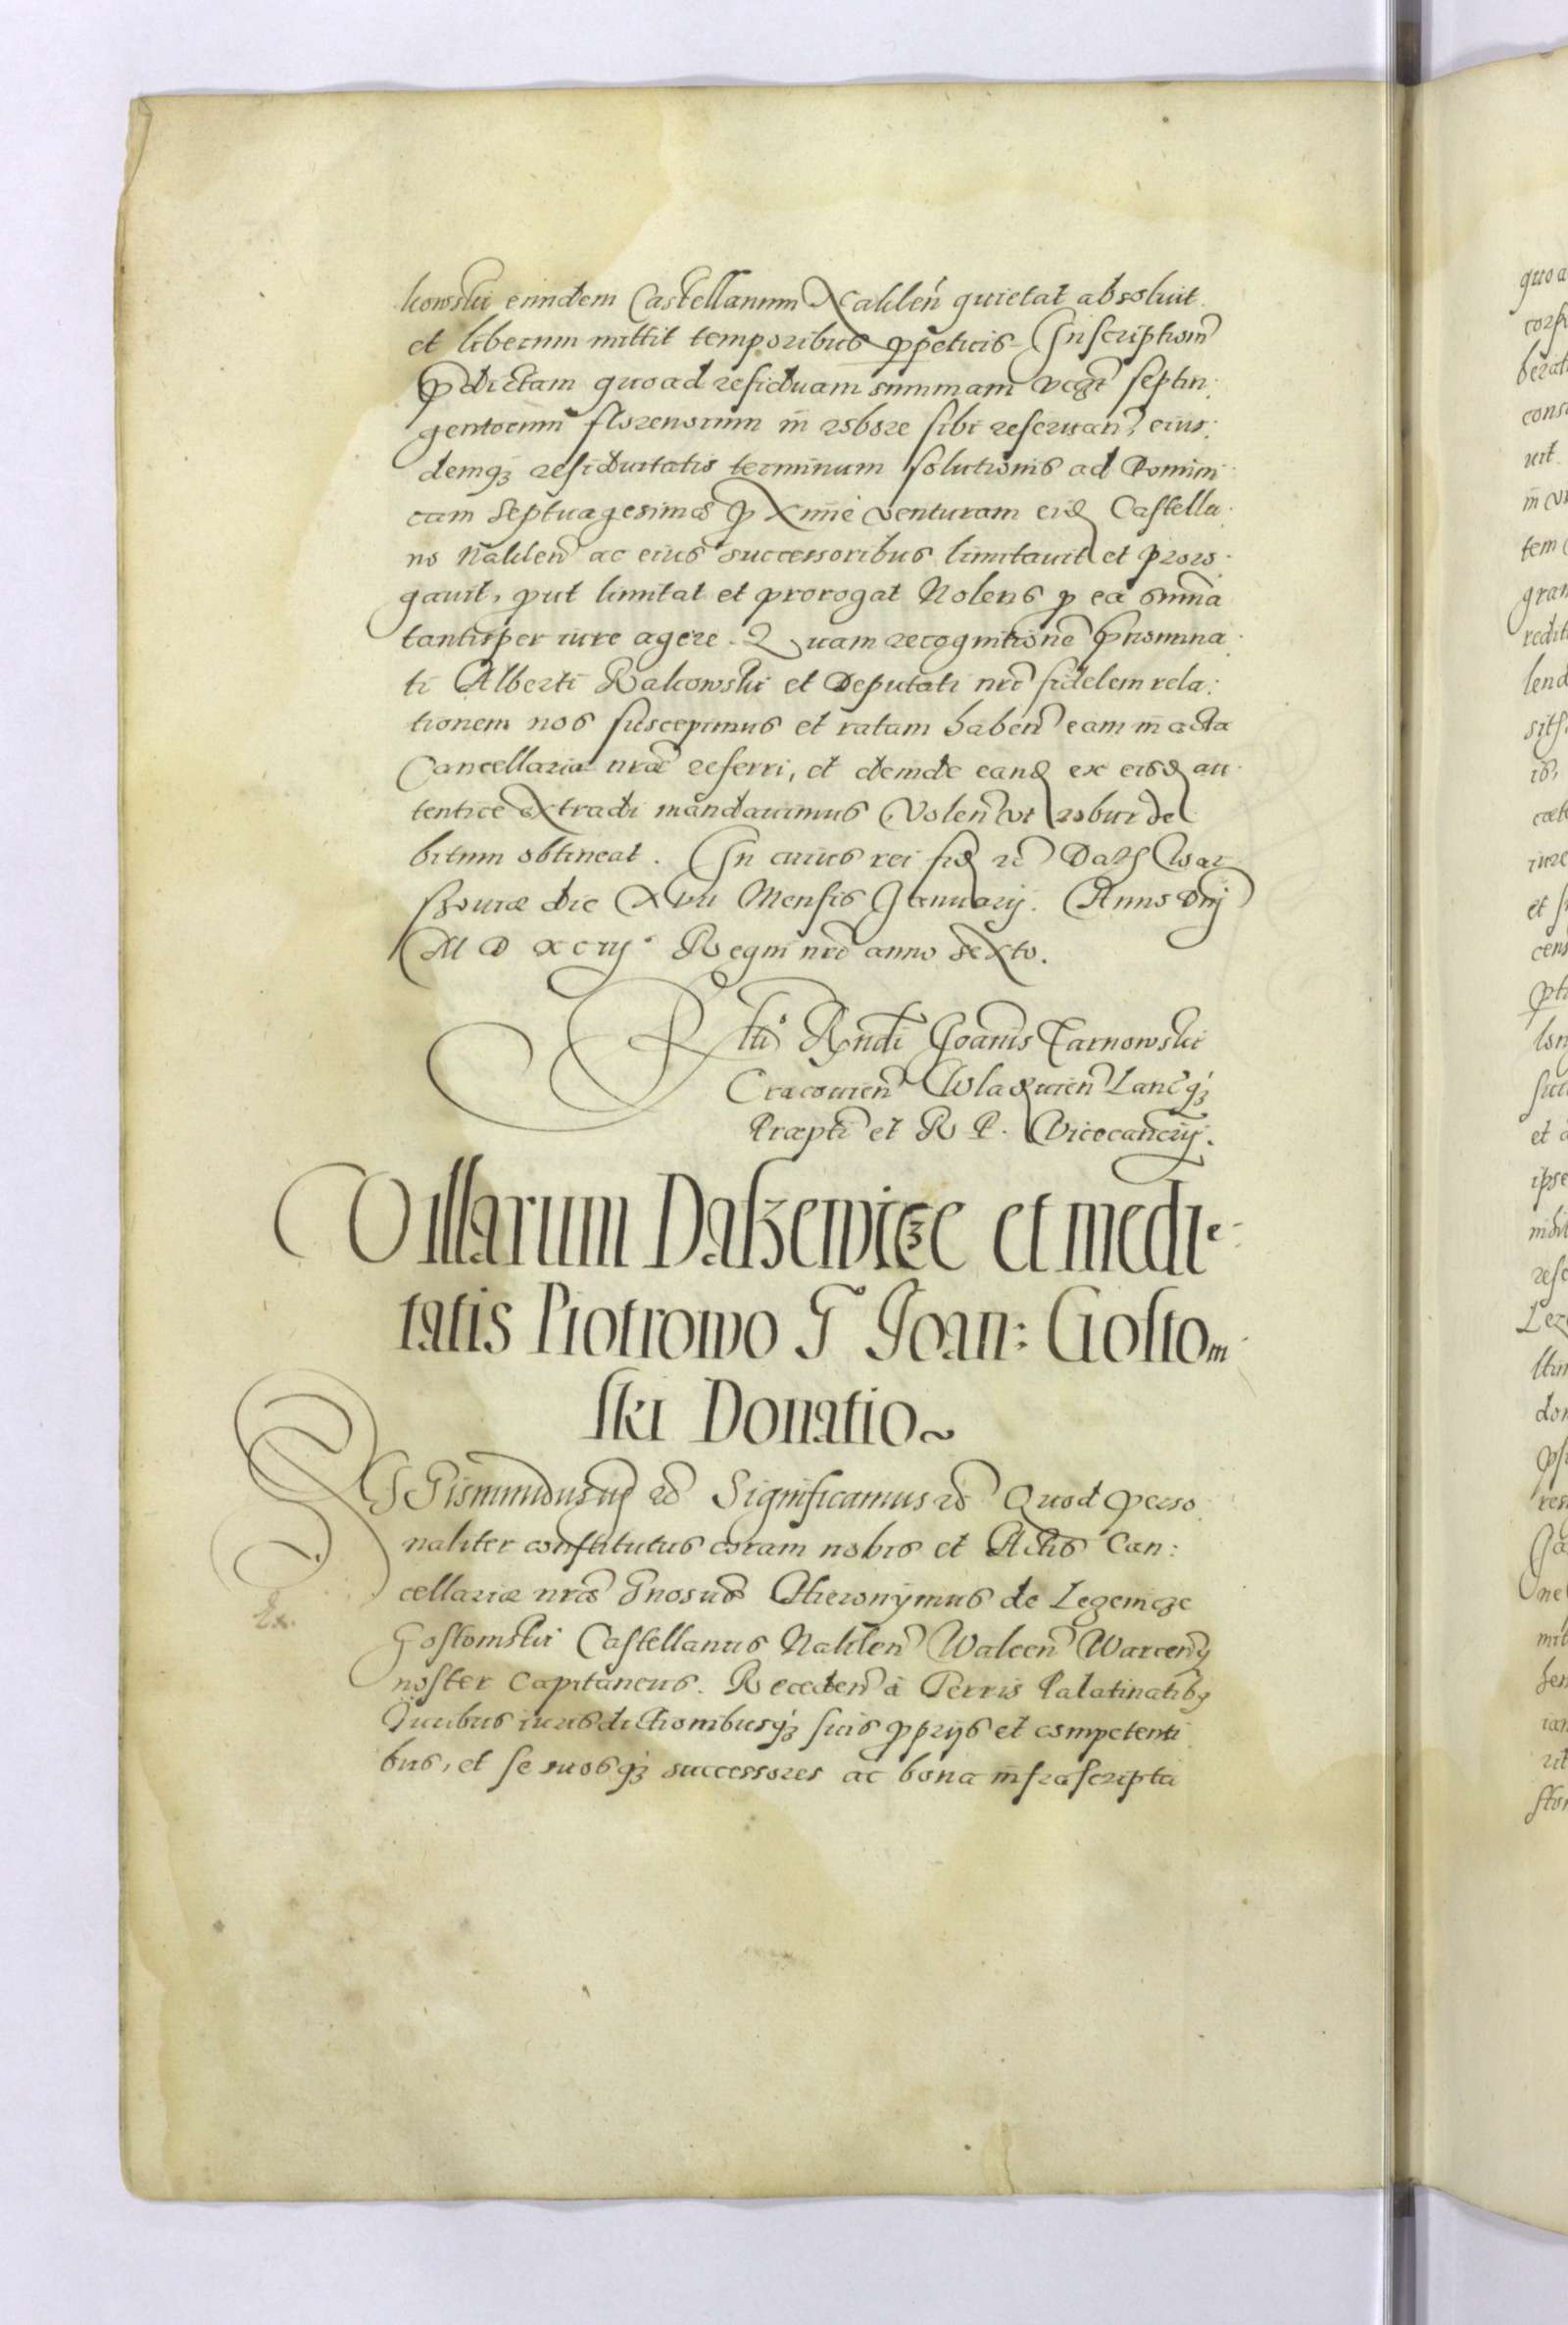 kowski eundem Castellanum Nakłen̄ quietat absoluit
et liberum mittit temporibus ꝑpetuis Inscription̄
p̄dictam quoad residuam summam vegīt septin:
gentorum florenorum in robore sibi reseruan̄, eius:
demqȝ residuitatis terminum solutionis ad Domini
cam Septuagesimā ꝓxime venturam eid Castella
no Naklen̄ ac eius successoribus limitauit et proro
gauit, ꝓut limitat et prorogat Nolens ꝓ ea sum̄a
tantisper iure agere. Quam recognitionē p̄nomina
ti Alberti Rakowski et Deputati nrī fidelem rela:
tionem nos suscepimus et ratam haben̄ eam in acta
Cancellariæ nræ referri, et deinde eand ex eisd au
tentice extradi mandauimus Volen̄ vt robur de
bitum obtineat. In cuius rei fid rc̄ Dat War
szouiæ die Xvii Mensis Januarij. Anno Dnj
M D xciij. Regni nrī anno sexto.
Rltī Rndi Joanis Tarnowski
Cracouien̄ Wladiuien̄ Lancqȝ
Præpti et R P. Vicecancrij.
Villarum Dalszewicze et medie-
tatis Piotrowo G Joan: Gostom
ski Donatio~
SGismundus iij rc̄ Significamus rc̄ Quod perso
naliter constitutus coram nobis et Actis Can:
cellariæ nræ Gnosus Hieronymus de Legenicze
Gostomski Castellanus Naklen̄ Walcen̄ Warcen̄qȝ
noster Capitaneus. Receden̄ à Terris Palatinatibȝ
Iuribus iurisdictionibusqȝ suis ꝓprijs et competenti
bus, et se suosqȝ successores ac bona infrascripta
Ex.